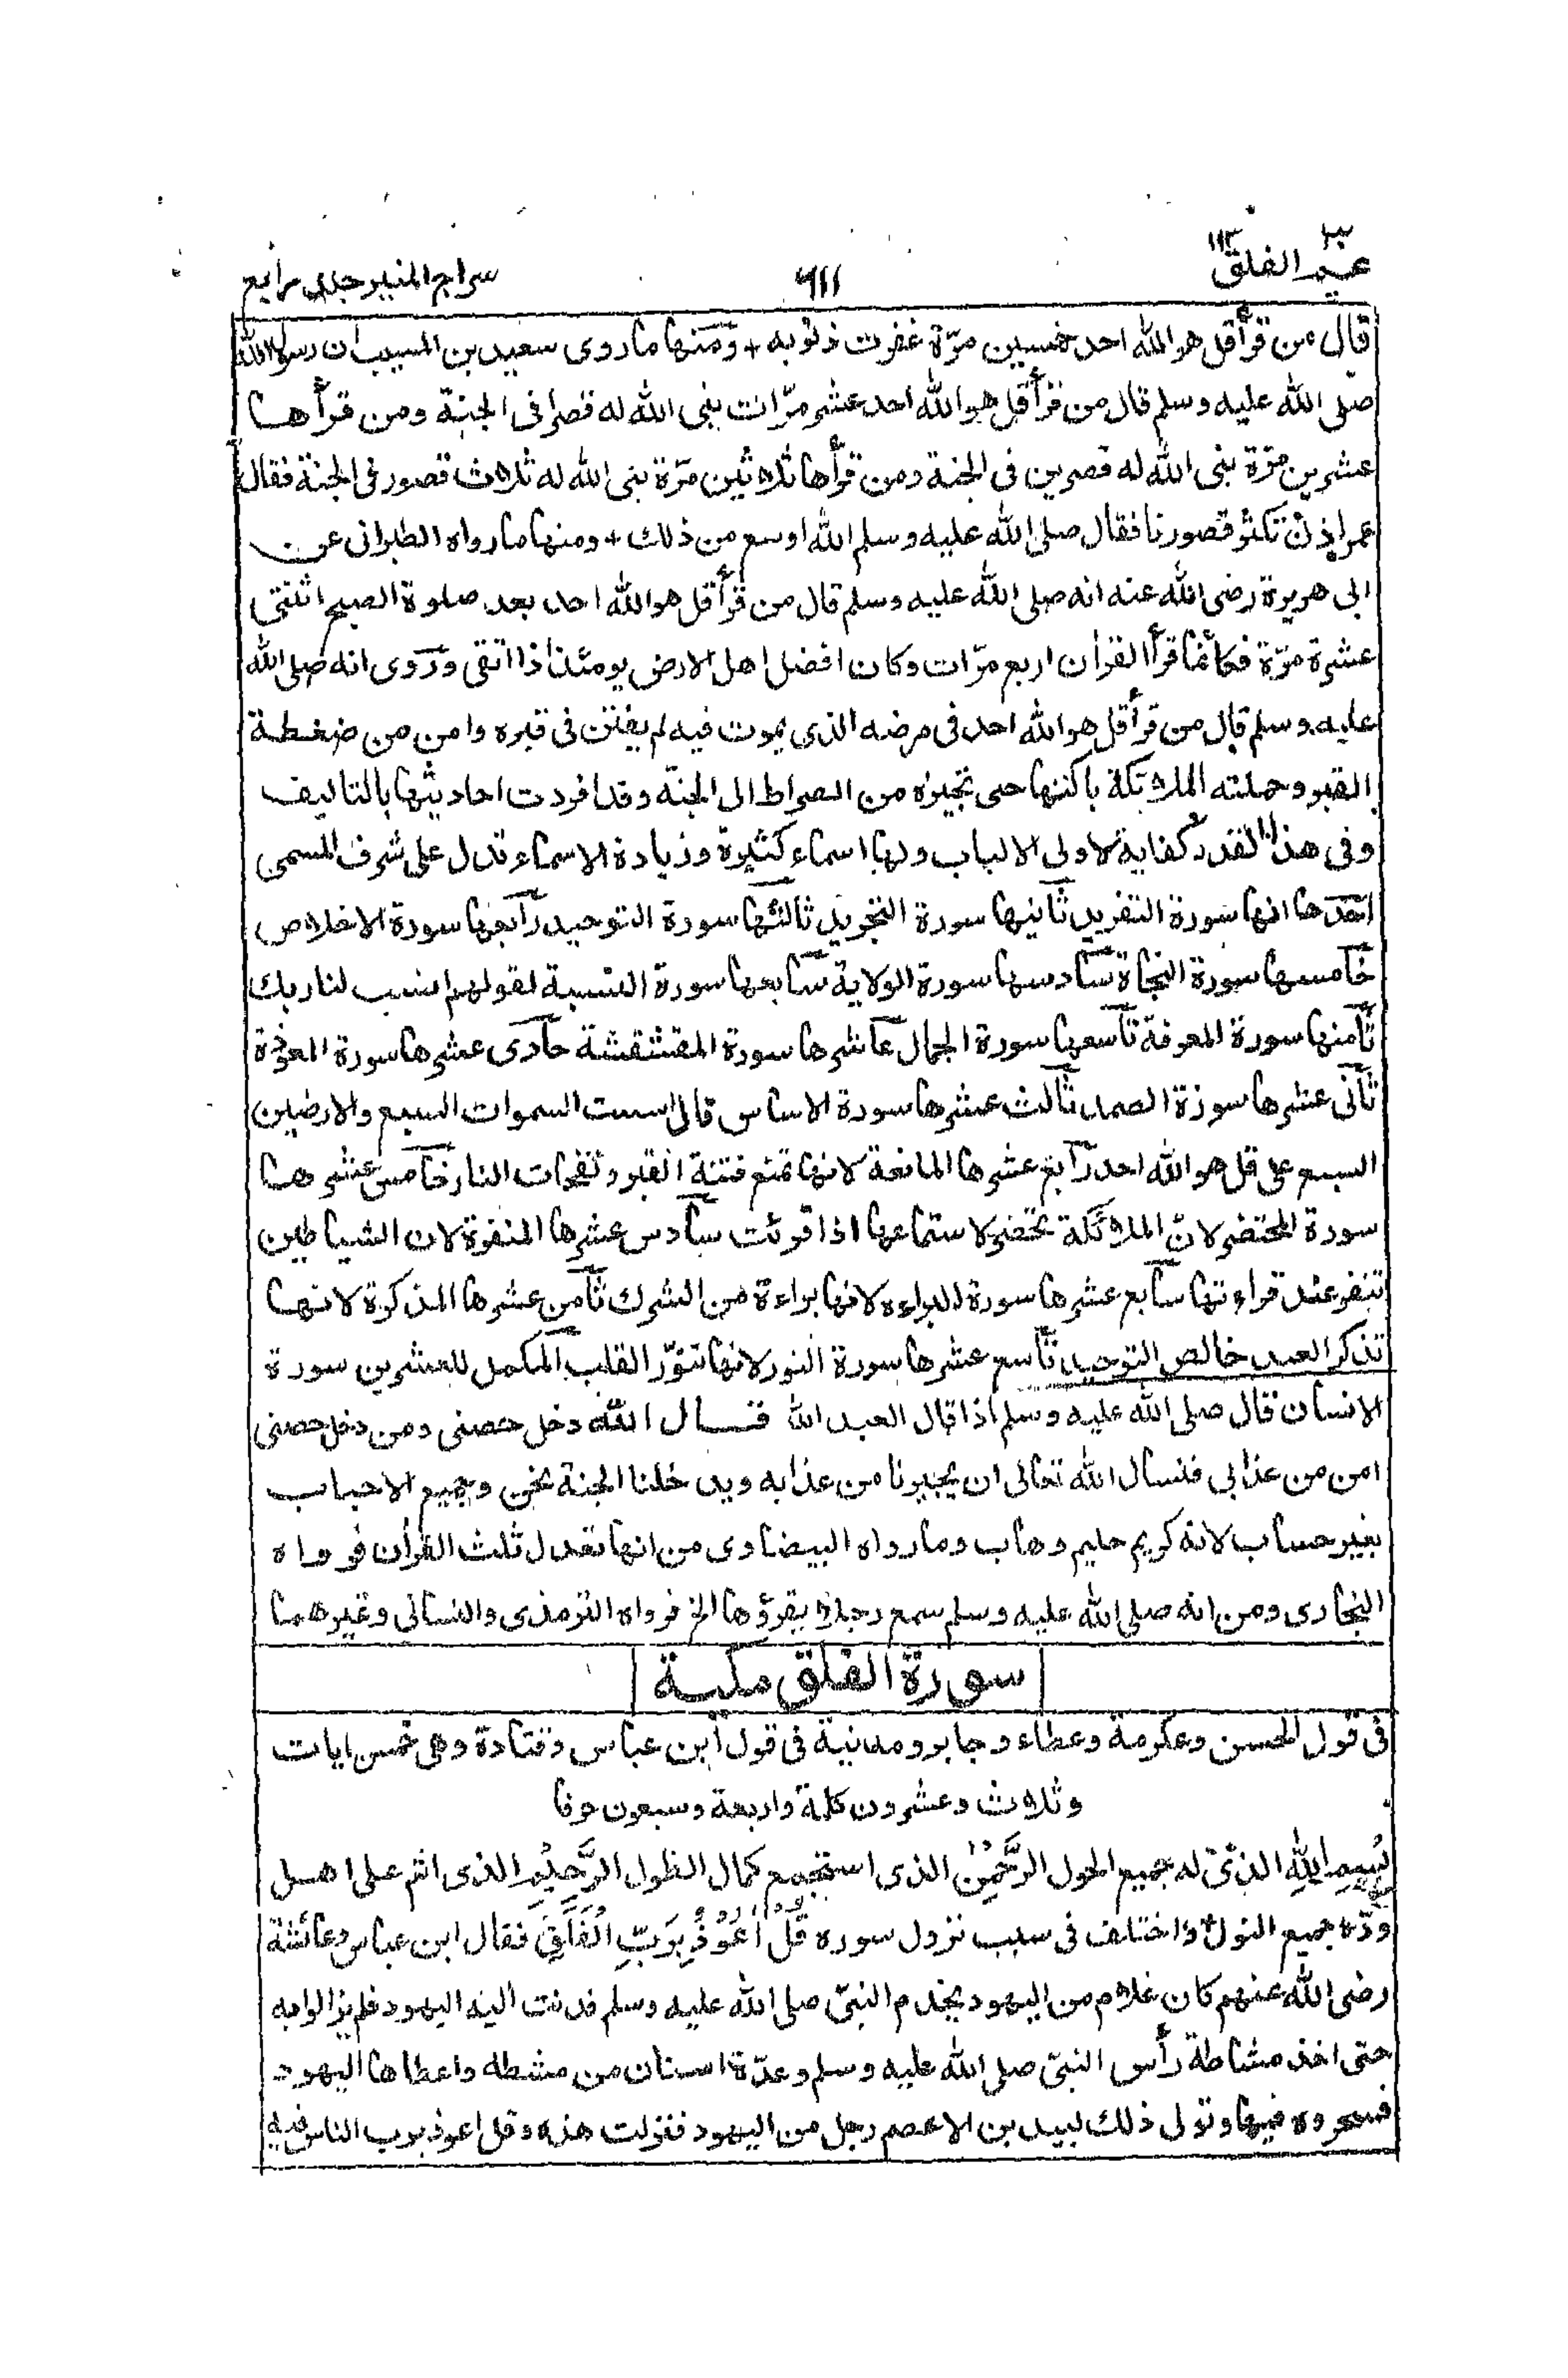 عم ٣٠ الفلق ١١٣
٦١١
سراج المنير جلد رابع
قال من قرأ قل هو الله احد خمسين مرّة غفرت ذنوبه + ومنها ما روى سعيد بن المسيب ان رسول الله
صلى الله عليه وسلم قال من قرأ قل هو الله احد عشر مرّات بنى الله له قصرا فى الجنة ومن قرأها
عشرين مرّة بنى الله له قصرين فى الجنة ومن قرأها ثلاثين مرّة بنى الله له ثلاث قصور فى الجنة فقال
عمر اذن تكثر قصورنا فقال صلى الله عليه وسلم الله اوسع من ذلك + ومنها ما رواه الطبرانى عن
ابى هريرة رضى الله عنه انه صلى الله عليه وسلم قال من قرأ قل هو الله احد بعد صلوة الصبح اثنتى
عشرة مرّة فكأنما قرأ القرأن اربع مرّات وكان افضل اهل الارض يومئذ اذا اتقى وروى انه صلى الله
عليه وسلم قال من قرأ قل هو الله احد فى مرضه الذى يموت فيه لم يفتن فى قبره وامن من ضغطة
القبر وحملته الملائكة باكفها حتى تجيزه من الصراط الى الجنة وقد افردت احاديثها بالتاليف
وفى هذا القدر كفاية لاولى الالباب ولها اسماء كثيرة وزيادة الاسماء تدل على شرف المسمى
احدها انها سورة التفريد ثانيها سورة التجريد ثالثها سورة التوحيد رابعها سورة الاخلاص
خامسها سورة النجاة سادسها سورة الولاية سابعها سورة النسبة لقولهم انسب لنا ربك
ثامنها سورة المعرفة تاسعها سورة الجمال عاشرها سورة المقشقشة حادى عشرها سورة المعوّذة
ثانى عشرها سورة الصمد ثالث عشرها سورة الاساس قال اسست السموات السبع والارضين
السبع على قل هو الله احد رابع عشرها المانعة لانها تمنع فتنة القبر ونفحات النار خامس عشرها
سورة المحتضر لانّ الملائكة تحتضر لاستماعها اذا قرئت سادس عشرها المنفرة لان الشياطين
تنفر عند قراءتها سابع عشرها سورة البراءه لانها براءة من الشرك ثامن عشرها المذكرة لانها
تذكر العبد خالص التوحيد تاسع عشرها سورة النور لانها تنوّر القلب المكمل للعشرين سورة
الانسان قال صلى الله عليه وسلم اذا قال العبد الله قال الله دخل حصنى ومن دخل حصنى
امن من عذابى فنسال الله تعالى ان يجيرنا من عذابه ويدخلنا الجنة نحن وجميع الاحباب
بغير حساب لانه كريم حليم وهاب وما رواه البيضاوى من انها تعدل ثلث القرأن فرواه
البخارى ومن انه صلى الله عليه وسلم سمع رجلا يقرؤها الخ فرواه الترمذى والنسائى وغيرهما
سورة الفلق مكية
فى قول الحسن وعكرمة وعطاء وجابر ومدنية فى قول ابن عباس وقتادة وهى خمس ايات
وثلاث وعشرون كلمة واربعة وسبعون حرفا
بِسْمِ اللهِ الذى له جميع الحول الرَّحْمٰنِ الذى استجمع كمال الطول الرَّحِيْمِ الذى اتم على اهل
ودّه جميع النول واختلف فى سبب نزول سوره قُلْ اَعُوْذُ بِرَبِّ الْفَلَقِ فقال ابن عباس وعائشة
رضى الله عنهم كان غلام من اليهود يخدم النبىّ صلى الله عليه وسلم فدنت اليه اليهود فلم يزالوا به
حتى اخذ مشاطة رأس النبىّ صلى الله عليه وسلم وعدّة اسنان من مشطه واعطاها اليهود
فسحروه فيها وتولى ذلك لبيد بن الاعصم رجل من اليهود فنزلت هذه وقل اعوذ برب الناس فيه